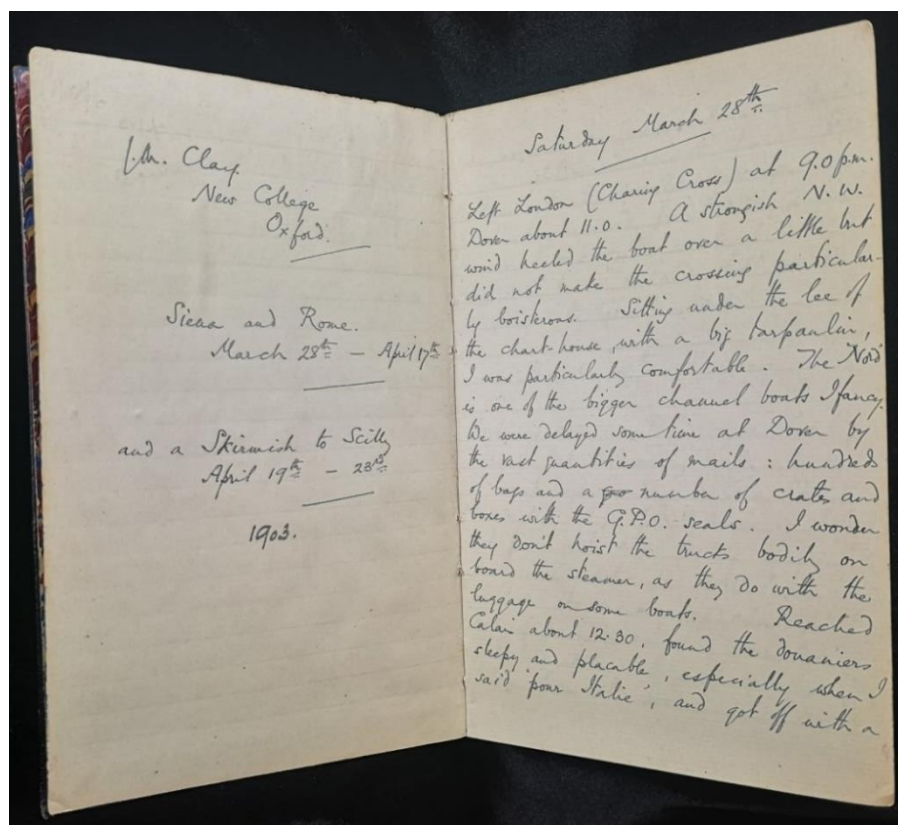 J.M. Clay.
New College
Oxford.
Siena and Rome.
March 28th – April 17th
and a Skirmish to Scilly
April 19th – 23rd
1903.
Saturday March 28th
Left London (Charing Cross) at 9.0 p.m.
Dover about 11.0. A strongish N.W.
wind heeled the boat over a little but
did not make the crossing particular-
ly boisterous. Sitting under the lee of
the chart-house, with a big tarpaulin,
I was particularly comfortable. The 'Nord'
is one of the bigger channel boats I fancy.
We were delayed some time at Dover by
the vast quantities of mails: hundreds
of bags and a number of crates and
boxes with the G.P.O. seals. I wonder
they don't hoist the trucks bodily on
board the steamer, as they do with the
luggage on some boats. Reached
Calais about 12.30, found the douaniers
sleepy and placable, especially when I
said 'pour Italie', and got off with a